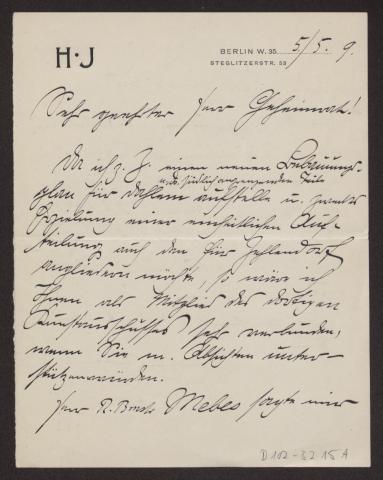 H·J
BERLIN W. 35 5/5. 9.
STEGLITZERSTR. 53
Sehr geehrter Herr Geheimrat!
Da ich z. Z. einen neuen Bebauungs-
u. d. südlich angrenzenden Teile
plan für Dahlem aufstelle u. zwecks
Erzielung einer einheitlichen Auf-
teilung auch den für Zehlendorf
angliedern möchte, so wäre ich
Ihnen als Mitglied des dortigen
Kunstausschusses sehr verbunden,
wenn Sie m. Absichten unter-
stützen würden.
Herr R. Bmstr. Mebes sagte mir
D 102-32 15 A